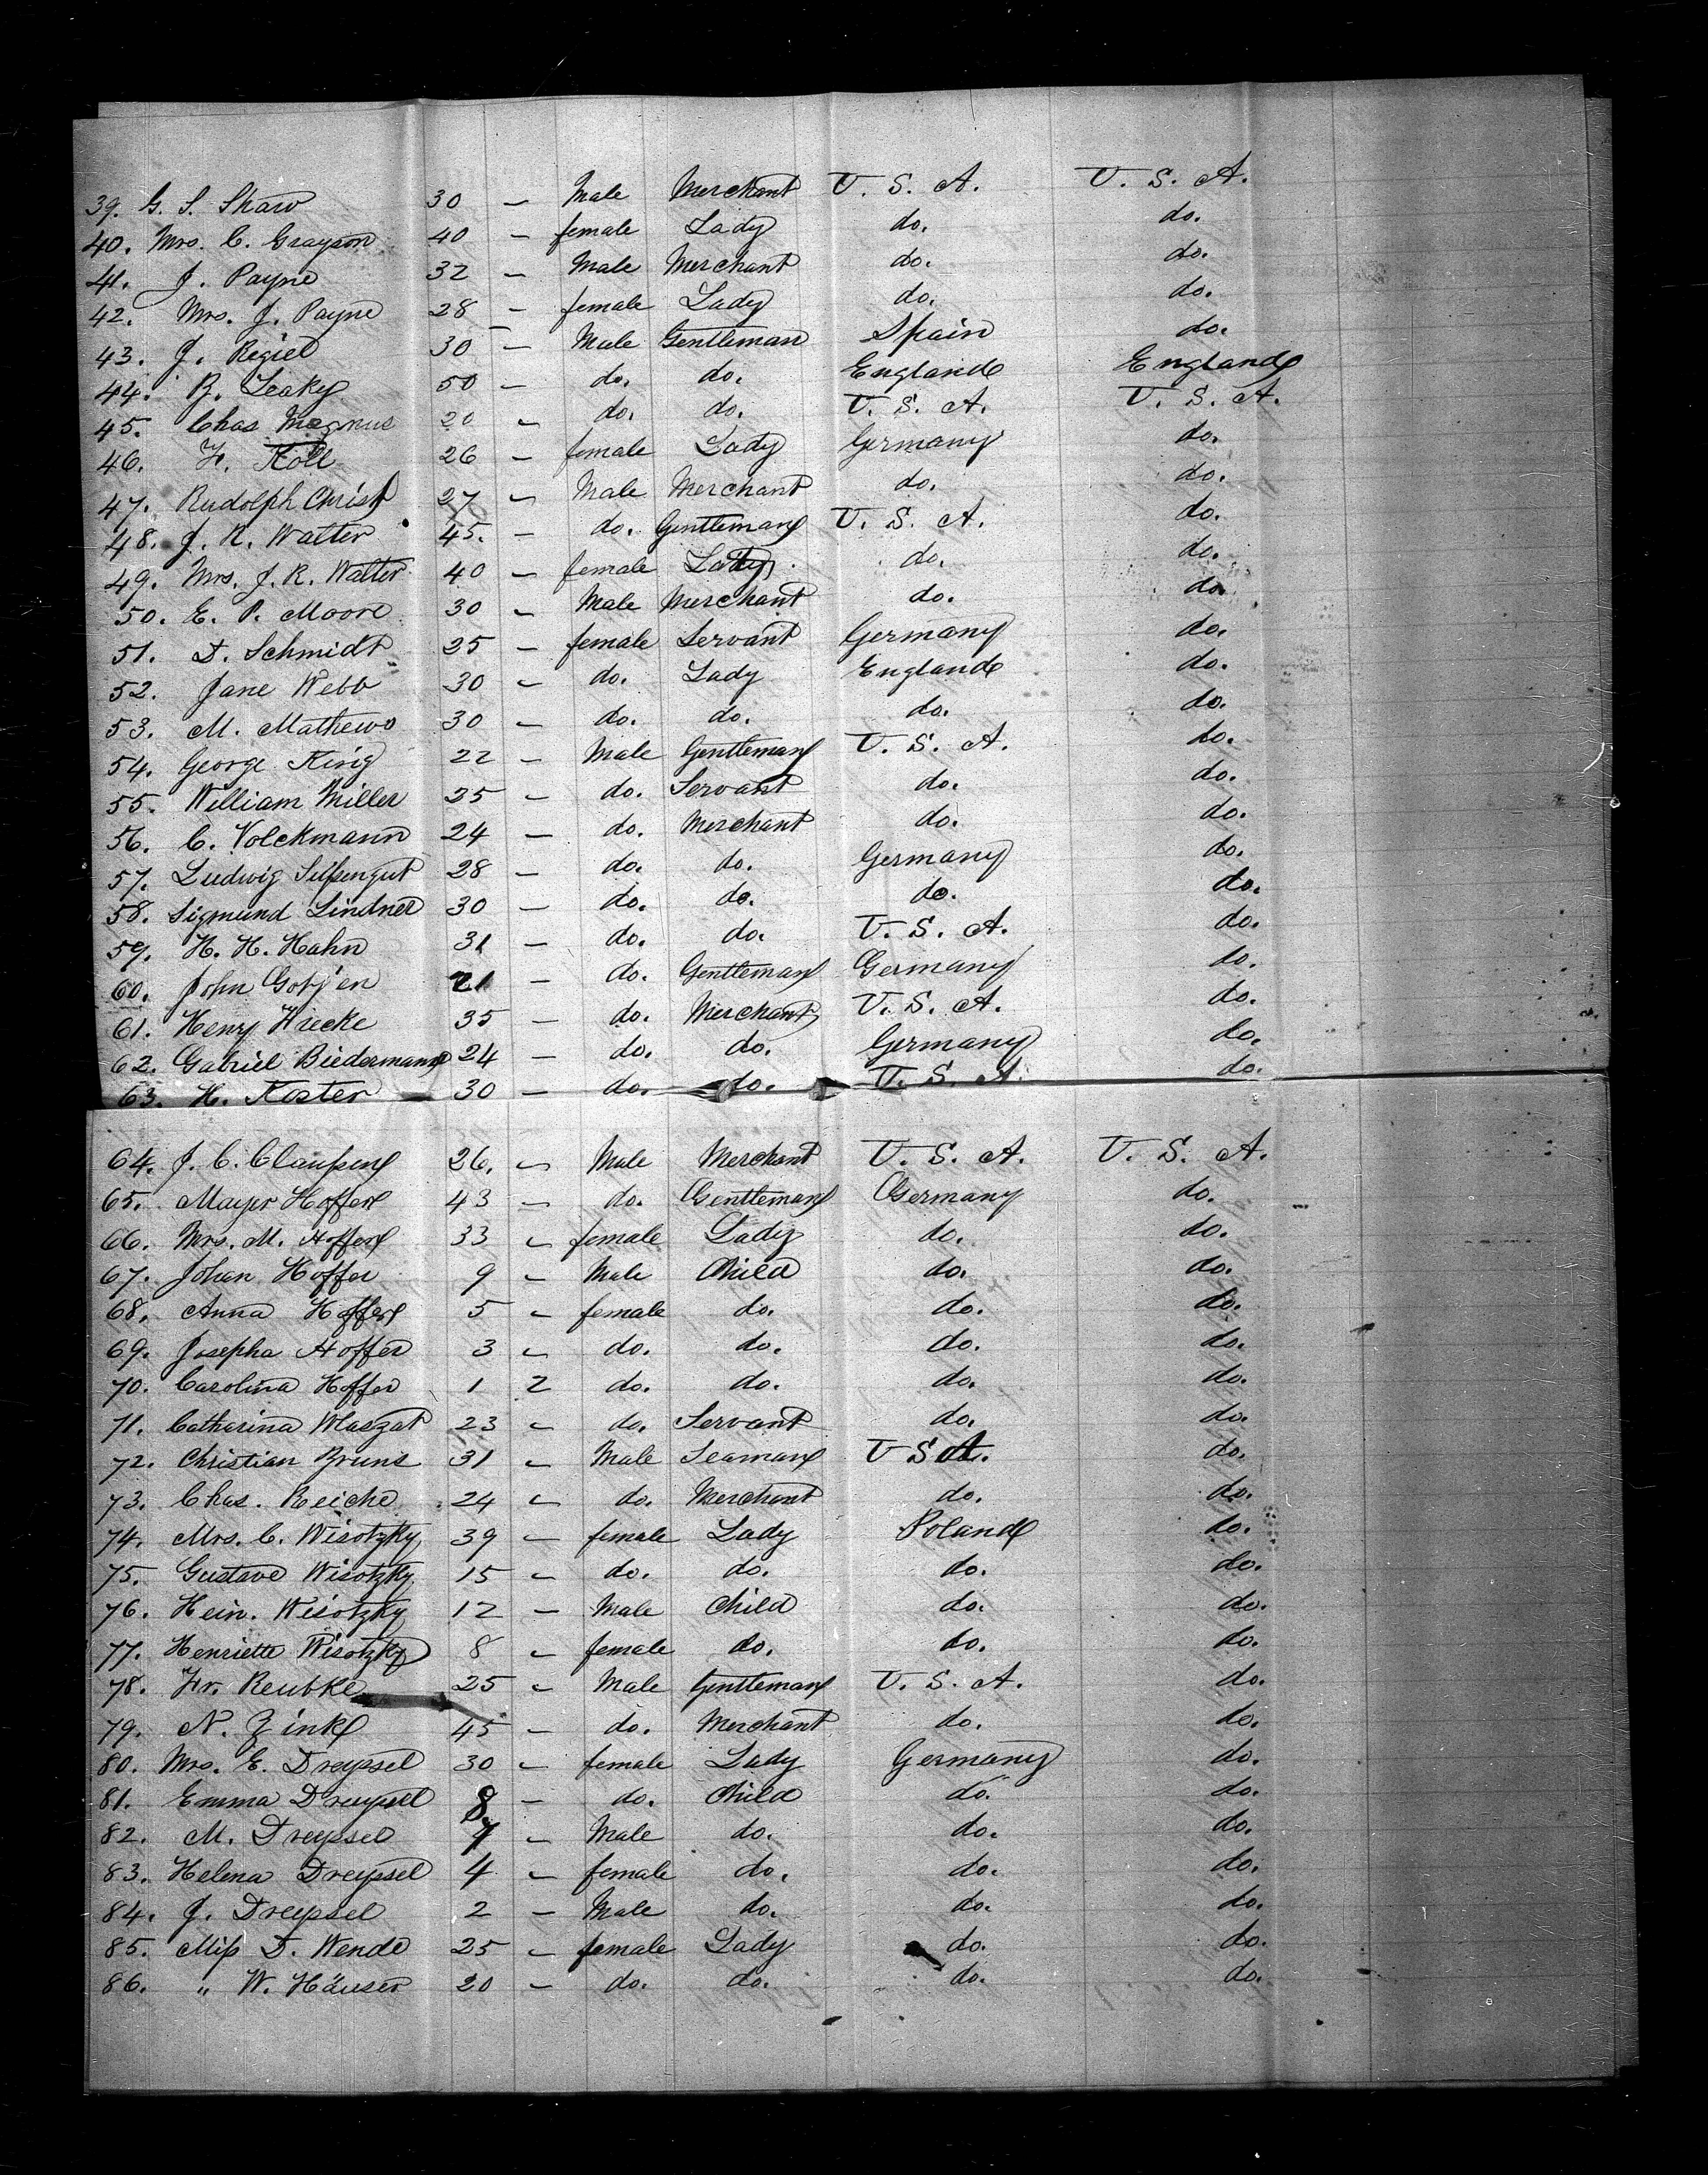 39. G. S. Shaw 30 — Male Merchant U. S. A. U. S. A.
40. Mrs. C. Grayson 40 — female Lady do. do.
41. J. Payne 32 — Male Merchant do. do.
42. Mrs. J. Payne 28 — female Lady do. do.
43. J. Regiel 30 — Male Gentleman Spain do.
44. B. Leaky 50 — do. do. England England
45. Chas Magnus 20 — do. do. U. S. A. U. S. A.
46. F. Köll 26 — female Lady Germany do.
47. Rudolph Christ 27 — Male Merchant do. do.
48. J. R. Walter 45. — do. Gentleman U. S. A. do.
49. Mrs. J. R. Walter 40 — female Lady do. do.
50. E. P. Moore 30 — Male Merchant do. do.
51. D. Schmidt 25 — female Servant Germany do.
52. Jane Webb 30 — do. Lady England do.
53. M. Mathews 30 — do. do. do. do.
54. George King 22 — Male Gentleman U. S. A. do.
55. William Miller 25 — do. Servant do. do.
56. C. Volckmann 24 — do. Merchant do. do.
57. Ludwig 28 — do. do. Germany do.
58. Sigmund Lindner 30 — do. do. do. do.
59. H. H. Hahn 31 — do. do. U. S. A. do.
60. John Gotjen 21 — do. Gentleman Germany do.
61. Henry Wiecke 35 — do. Merchant U. S. A. do.
62. Gabriel Biedermann 24 — do. do. Germany do.
63. H. Koster 30 — do. do. U. S. A. do.
64. J. C. Claussen 26. — Male Merchant U. S. A. U. S. A.
65. Mayer Hoffer 43 — do. Gentleman Germany do.
66. Mrs. M. Hoffer 33 — female Lady do. do.
67. Johan Hoffer 9 — Male Child do. do.
68. Anna Hoffer 5 — female do. do. do.
69. Josepha Hoffer 3 — do. do. do. do.
70. Carolina Hoffer 1 2 do. do. do. do.
71. Catharina Waszat 23 — do. Servant do. do.
72. Christian Bruns 31 — Male Seaman U S A. do.
73. Chas. Reiche 24 — do. Merchant do. do.
74. Mrs. C. Wisotzky 39 — female Lady Poland do.
75. Gustave Wisotzky 15 — do. do. do. do.
76. Hein. Wisotzky 12 — Male Child do. do.
77. Henriette Wisotzky 8 — female do. do. do.
78. Fr. Reubke 25 — Male Gentleman U. S. A. do.
79. N. Zink 45 — do. Merchant do. do.
80. Mrs. E. Dreyssel 30 — female Lady Germany do.
81. Emma Dreyssel 8 — do. Child do. do.
82. M. Dreyssel 7 — Male do. do. do.
83. Helena Dreyssel 4 — female do. do. do.
84. J. Dreyssel 2 — Male do. do. do.
85. Miss D. Wende 25 — female Lady do. do.
86. " W. Häuser 20 — do. do. do. do.